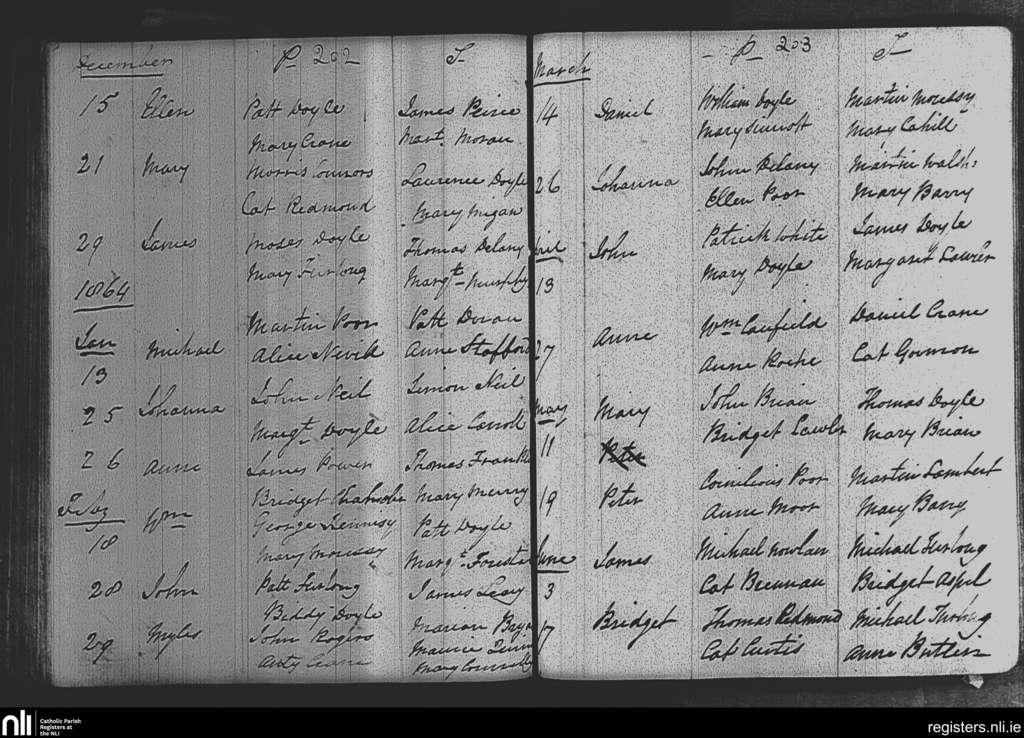 December P 202 S
15 Ellen Patt Doyle James Peirce
Mary Crane Mart. Moran
21 Mary Morris Connors Laurence Doyle
Cat Redmond Mary
29 James Moses Doyle Thomas Delany
Mary Furlong Margt Murphy
1864
Jan Martin Poor Patt Doran
13 Michael Alice Nevill Anne Stafford
25 Johanna John Neil Simon Neil
Margt Doyle Alice Carroll
26 Anne James Power Thomas
Bridget Mary Merry
Feby
18 Wm George Patt Doyle
Mary Margt
28 John Patt Furlong James Leary
Biddy Doyle Marian
29 Myles John Rogers Maurice
Mary
March P 203 S
14 Daniel William Doyle Martin
Mary Sinnott Mary Cahill
26 Johanna John Delany Martin Walsh
Ellen Poor Mary Barry
John Patrick White James Doyle
13 Mary Doyle Margaret Lawler
27 Anne Wm Caufield Daniel Crane
Anne Roche Cat Gormon
May Mary John Brian Thomas Doyle
11 Bridget Lawler Mary Brian
Peter
19 Peter Cornelious Poor Martin Lambert
Anne Moor Mary Barry
June James Michael Nowlan Michael Furlong
3 Cat Brennan Bridget Aspel
17 Bridget Thomas Redmond Michael Furlong
Cat Curtis Anne Butler
nli Catholic Parish
Registers at
the NLI
registers.nli.ie